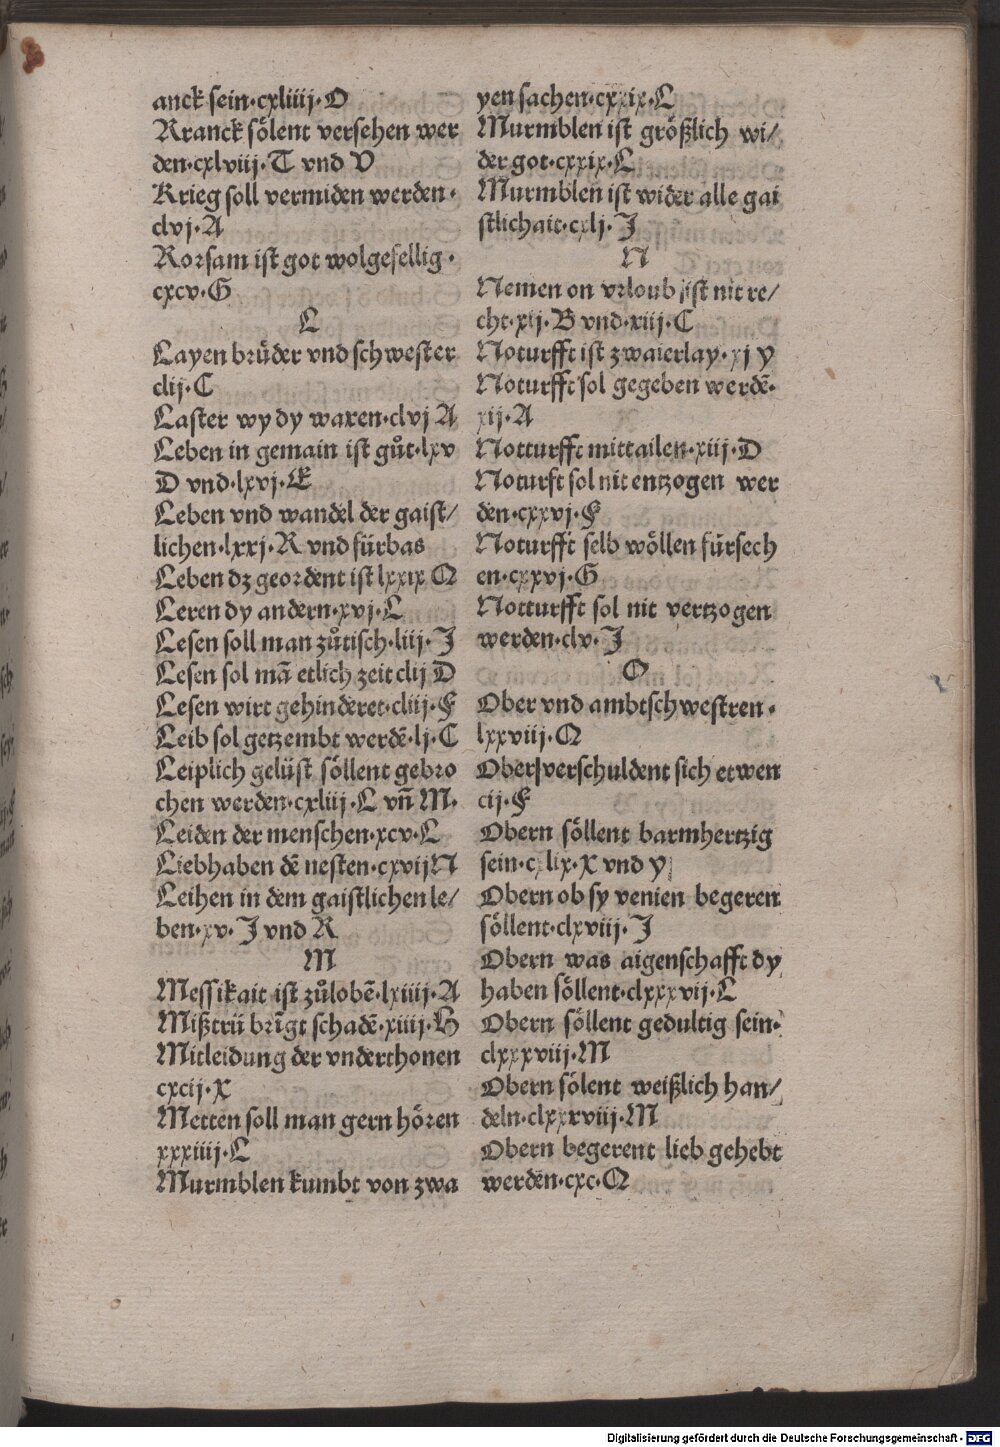 anck sein·cxliiij·O
Kranck sölent versehen wer
den·cxlviij·T vnd V
Krieg soll vermiden werden·
clvj·A
Korsam ist got wolgefellig·
cxcv·G
L
Layen brüder vnd schwester
clij·C
Laster wy dy waxen·clvj A
Leben in gemain ist gůt·lxv
D vnd·lxvj·E
Leben vnd wandel der gaist/
lichen·lxxj·R vnd fürbas
Leben dz geordent ist lxxix Q
Leren dy andern·xvj·L
Lesen soll man zůtisch·liij·J
Lesen sol mā etlich zeit clij D
Lesen wirt gehinderet·cliij·F
Leib sol getzembt werdē·lj·C
Leiplich gelüst söllent gebro
chen werden·cxliij·L vn̄ M·
Leiden der menschen·xcv·L
Liebhaben dē nesten·cxvij N
Leihen in dem gaistlichen le/
ben·xv·J vnd K
M
Messikait ist zůlobē·lxiiij·A
Mißtrü brīgt schadē·xiiij·H
Mitleidung der vnderthonen
cxcij·X
Metten soll man gern hören
xxxiiij·L
Murmblen kumbt von zwa
yen sachen·cxxix·L
Murmblen ist größlich wi/
der got·cxxix·L
Murmblen ist wider alle gai
stlichait·cxlj·J
N
Nemen on vrloub ist nit re/
cht·xij·B vnd·xiij·C
Noturfft ist zwaierlay·xj y
Noturfft sol gegeben werdē·
xij·A
Notturfft mittailen·xiij·D
Noturft sol nit entzogen wer
den·cxxvj·F
Noturfft selb wöllen fürsech
en·cxxvj·G
Notturfft sol nit vertzogen
werden·clv·J
O
Ober vnd ambtschwestren·
lxxviij·Q
Ober verschuldent sich etwen
cij·F
Obern söllent barmhertzig
sein·cxlix·X vnd y
Obern ob sy venien begeren
söllent·clxviij·J
Obern was aigenschafft dy
haben söllent·clxxxvij·L
Obern söllent gedultig sein·
clxxxviij·M
Obern sölent weißlich han/
deln·clxxxviij·M
Obern begerent lieb gehebt
werden·cxc·Q
Digitalisierung gefördert durch die Deutsche Forschungsgemeinschaft · DFG